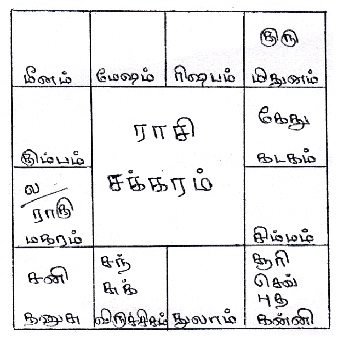 குரு
மீனம் மேஷம் ரிஷபம் மிதுனம்
கேது
கடகம்
ராசி
சக்கரம்
கும்பம்
ல
ராகு
மகரம்
சிம்மம்
சனி
தனுசு
சந்
சுக்
விருச்சிகம்
துலாம்
சூரி
செவ்
புத
கன்னி